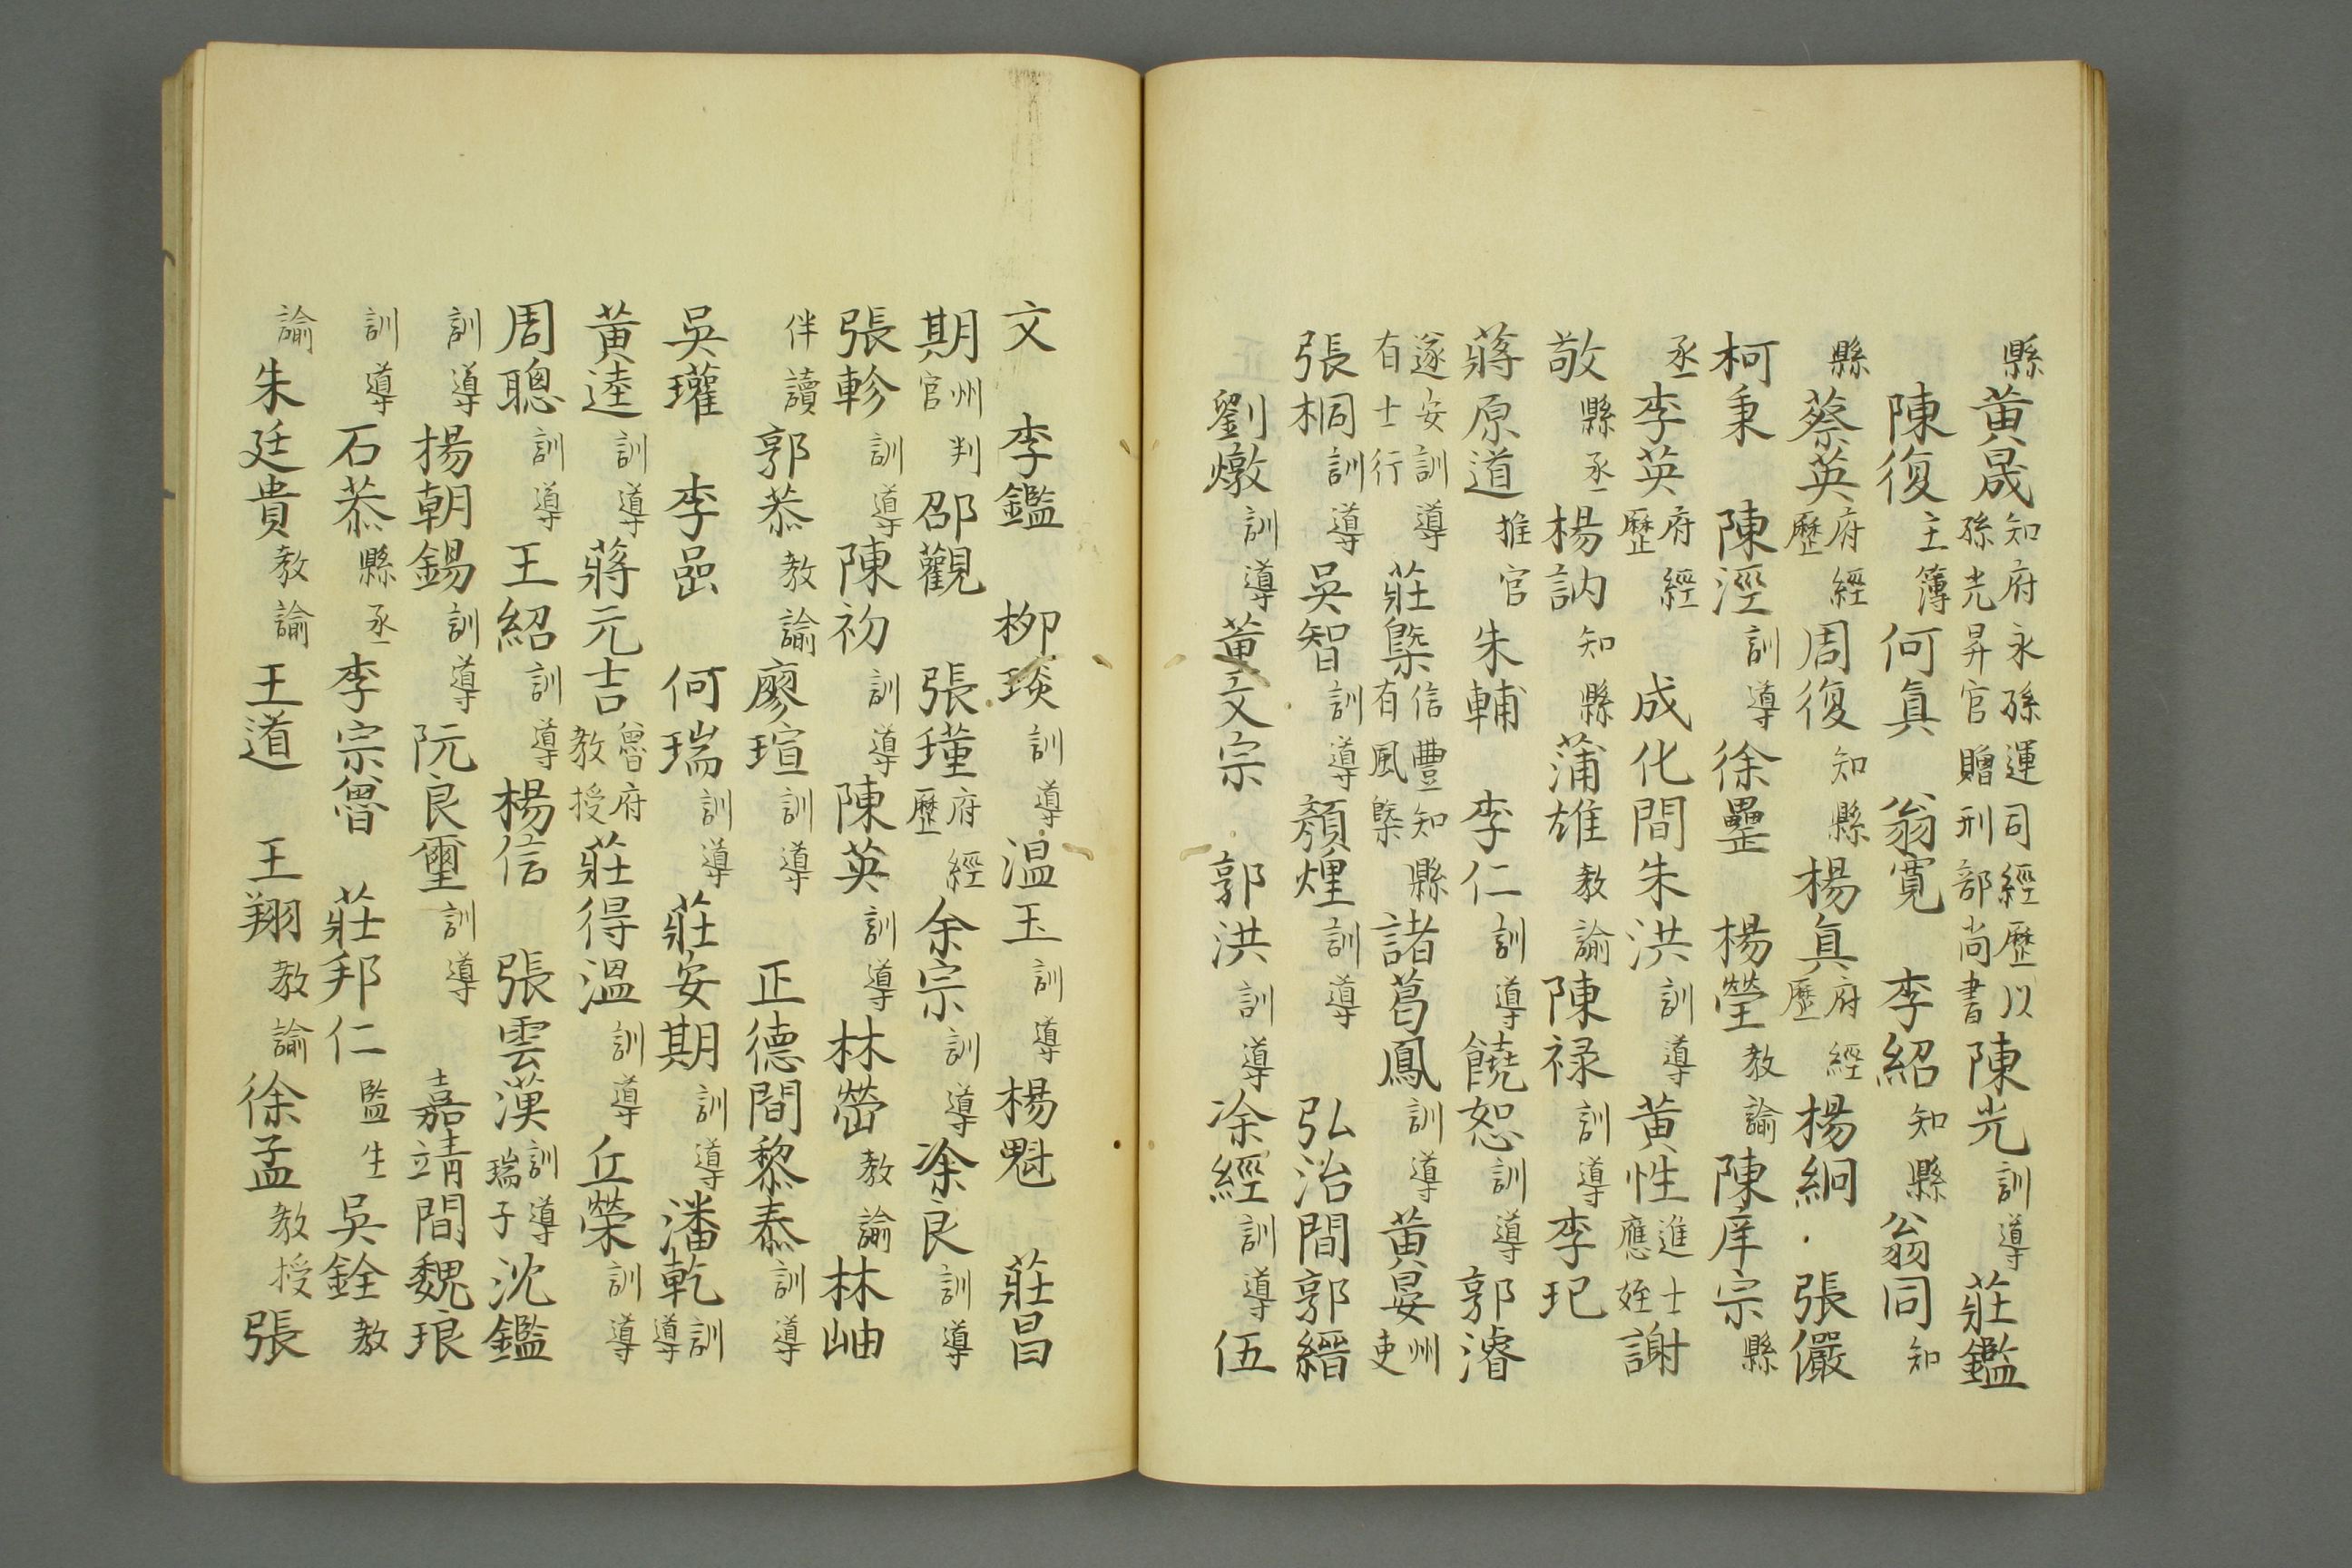 縣黃晟知府永孫運司經歷以孫光昇官贈刑部尚書陳光訓導莊鑑
陳復主簿何真翁寬李紹知縣翁同知
縣蔡英府經歷周復知縣楊真府經歷楊絅張儼
柯秉陳溼訓導徐壘楊瑩教諭陳庠宗縣
丞李英府經歷成化間朱洪訓導黃性進士應姪謝
敬縣丞楊訥知縣蒲雄教諭陳祿訓導李玘
蔣原道推官朱輔李仁訓導饒恕訓導郭濬
遂安訓導有士行莊槩信豐知縣有風槩諸葛鳳訓導黃晏州吏
張桐訓導吳智訓導顏煙訓導弘治間郭縉
劉燉訓導董文宗郭洪訓導凃經訓導伍
文李鑑柳琰訓導温玉訓導楊魁莊昌
期州判官邵觀張瑾府經歷余宗訓導凃良訓導
張軫訓導陳初訓導陳英訓導林嶅教諭林岫
伴讀郭恭教諭廖瑄訓導正德間黎泰訓導
吳瓘李嵒何瑞訓導莊安期訓導潘乾訓導
黃逵訓導蔣元吉魯府教授莊得溫訓導丘榮訓導
周聰訓導王紹訓導楊信張雲漢訓導瑞子沈鑑
訓導楊朝錫訓導阮良璽訓導嘉靖間魏琅
訓導石恭縣丞李宗魯莊邦仁監生吳銓教
諭朱廷貴教諭王道王翔教諭徐孟教授張